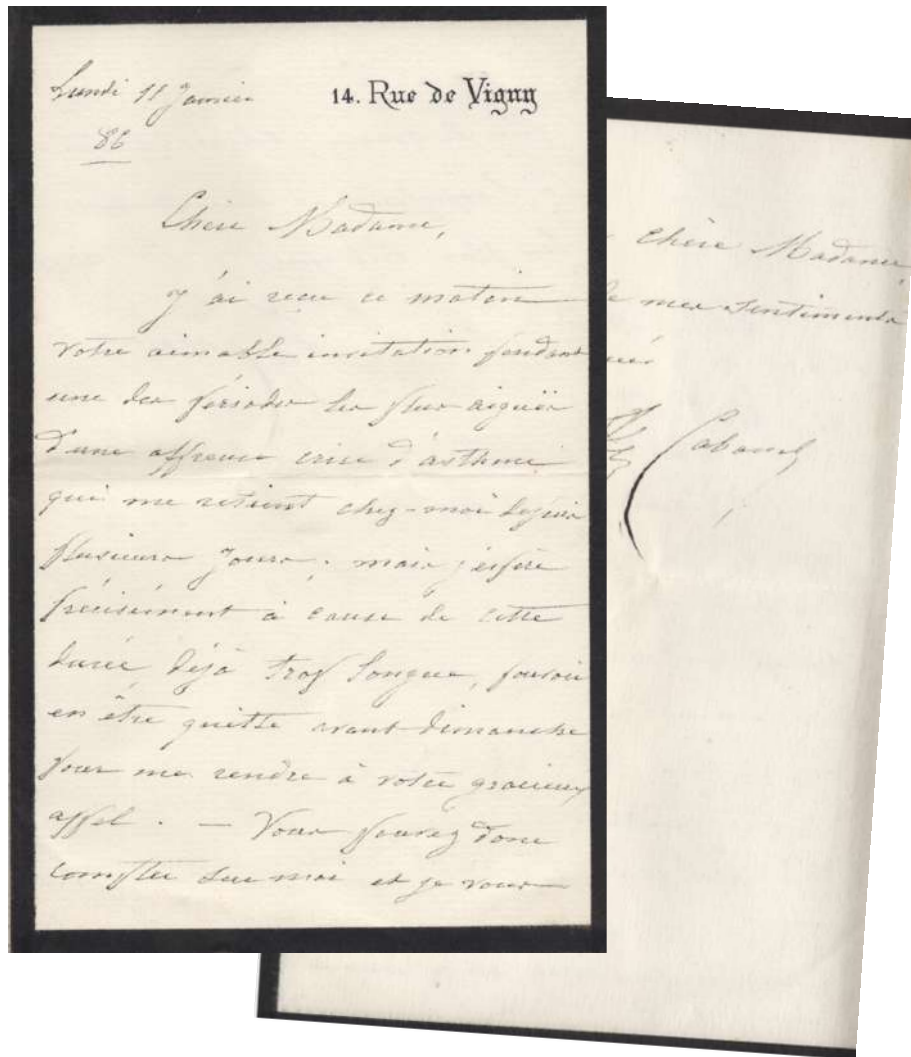 Lundi 11 Janvier
86
14. Rue de Vigny
Chère Madame,
J'ai reçu ce matin
votre aimable invitation pendant
une des périodes les plus aiguës
d'une affreuse crise d'asthme
qui me retient chez-moi depuis
plusieurs jours; mais j'espère
précisément à cause de cette
durée, déjà trop longue, pouvoir
en être quitte avant Dimanche
pour me rendre à votre gracieux
appel. — Vous pouvez donc
compter sur moi et je vous
chère Madame,
de mes sentiments
Cabanel